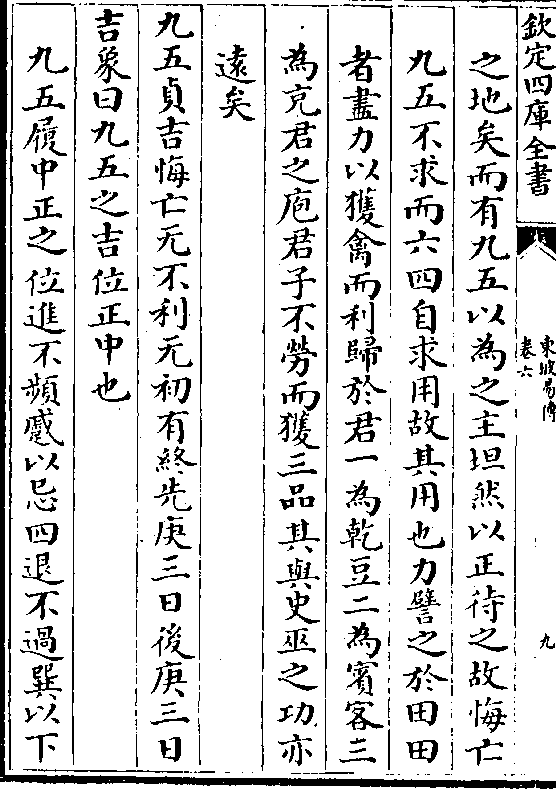 欽定四庫全書
東坡易傳
卷六
九
之地矣而有九五以為之主坦然以正待之故悔亡
九五不求而六四自求用故其用也力譬之於田田
者盡力以獲禽而利歸於君一為乾豆二為賓客三
為充君之庖君子不勞而獲三品其與史巫之功亦
遠矣
九五貞吉悔亡无不利无初有終先庚三日後庚三日
吉象曰九五之吉位正中也
九五履中正之位進不頻蹙以忌四退不過巽以下